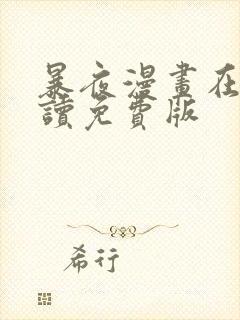 暴夜漫畫在
讀免費版
希行